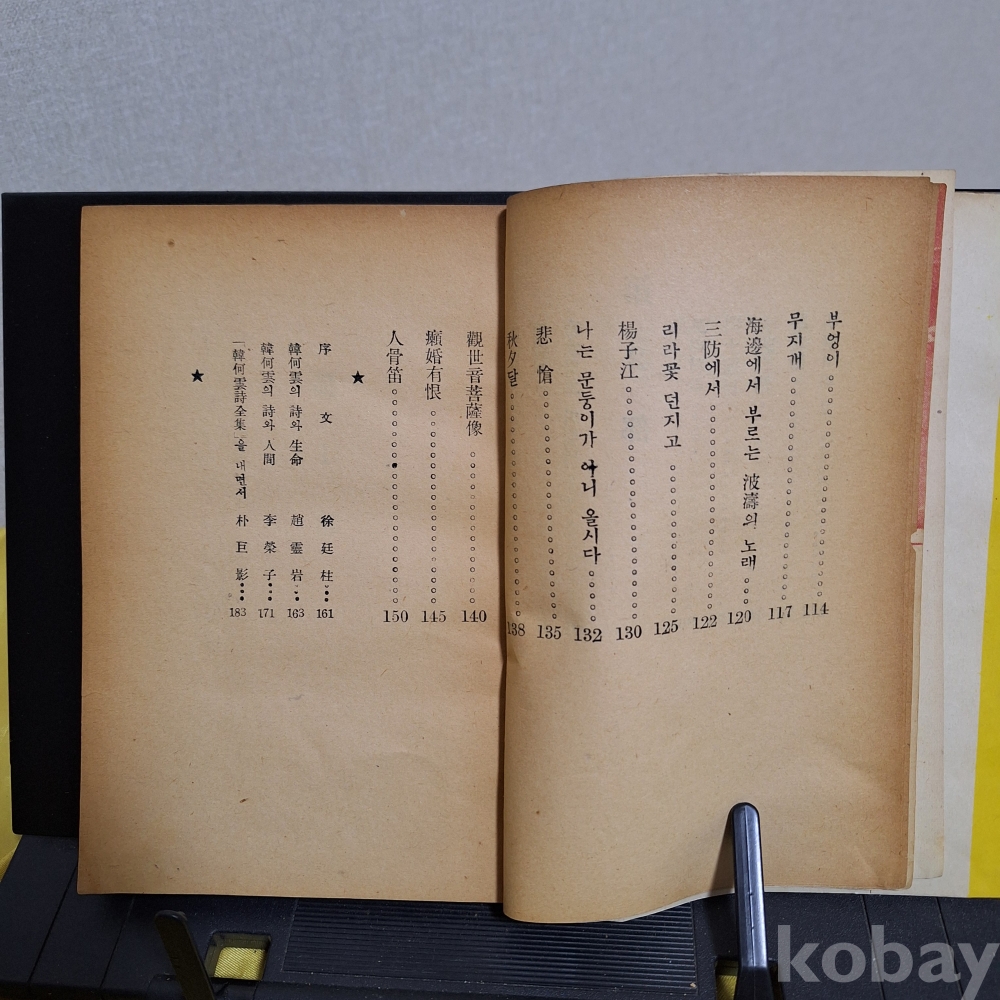 부엉이 114
무지개 117
海邊에서 부르는 波濤의 노래 120
三防에서 122
리라꽃 던지고 125
楊子江 130
나는 문둥이가 아니 올시다 132
悲愴 135
秋夕달 138
觀世音菩薩像 140
癩婚有恨 145
人骨笛 150
★
序文 徐廷柱 161
韓何雲의 詩와 生命 趙靈岩 163
韓何雲의 詩와 人間 李榮子 171
「韓何雲詩全集」을 내면서 朴巨影 183
★
kobay